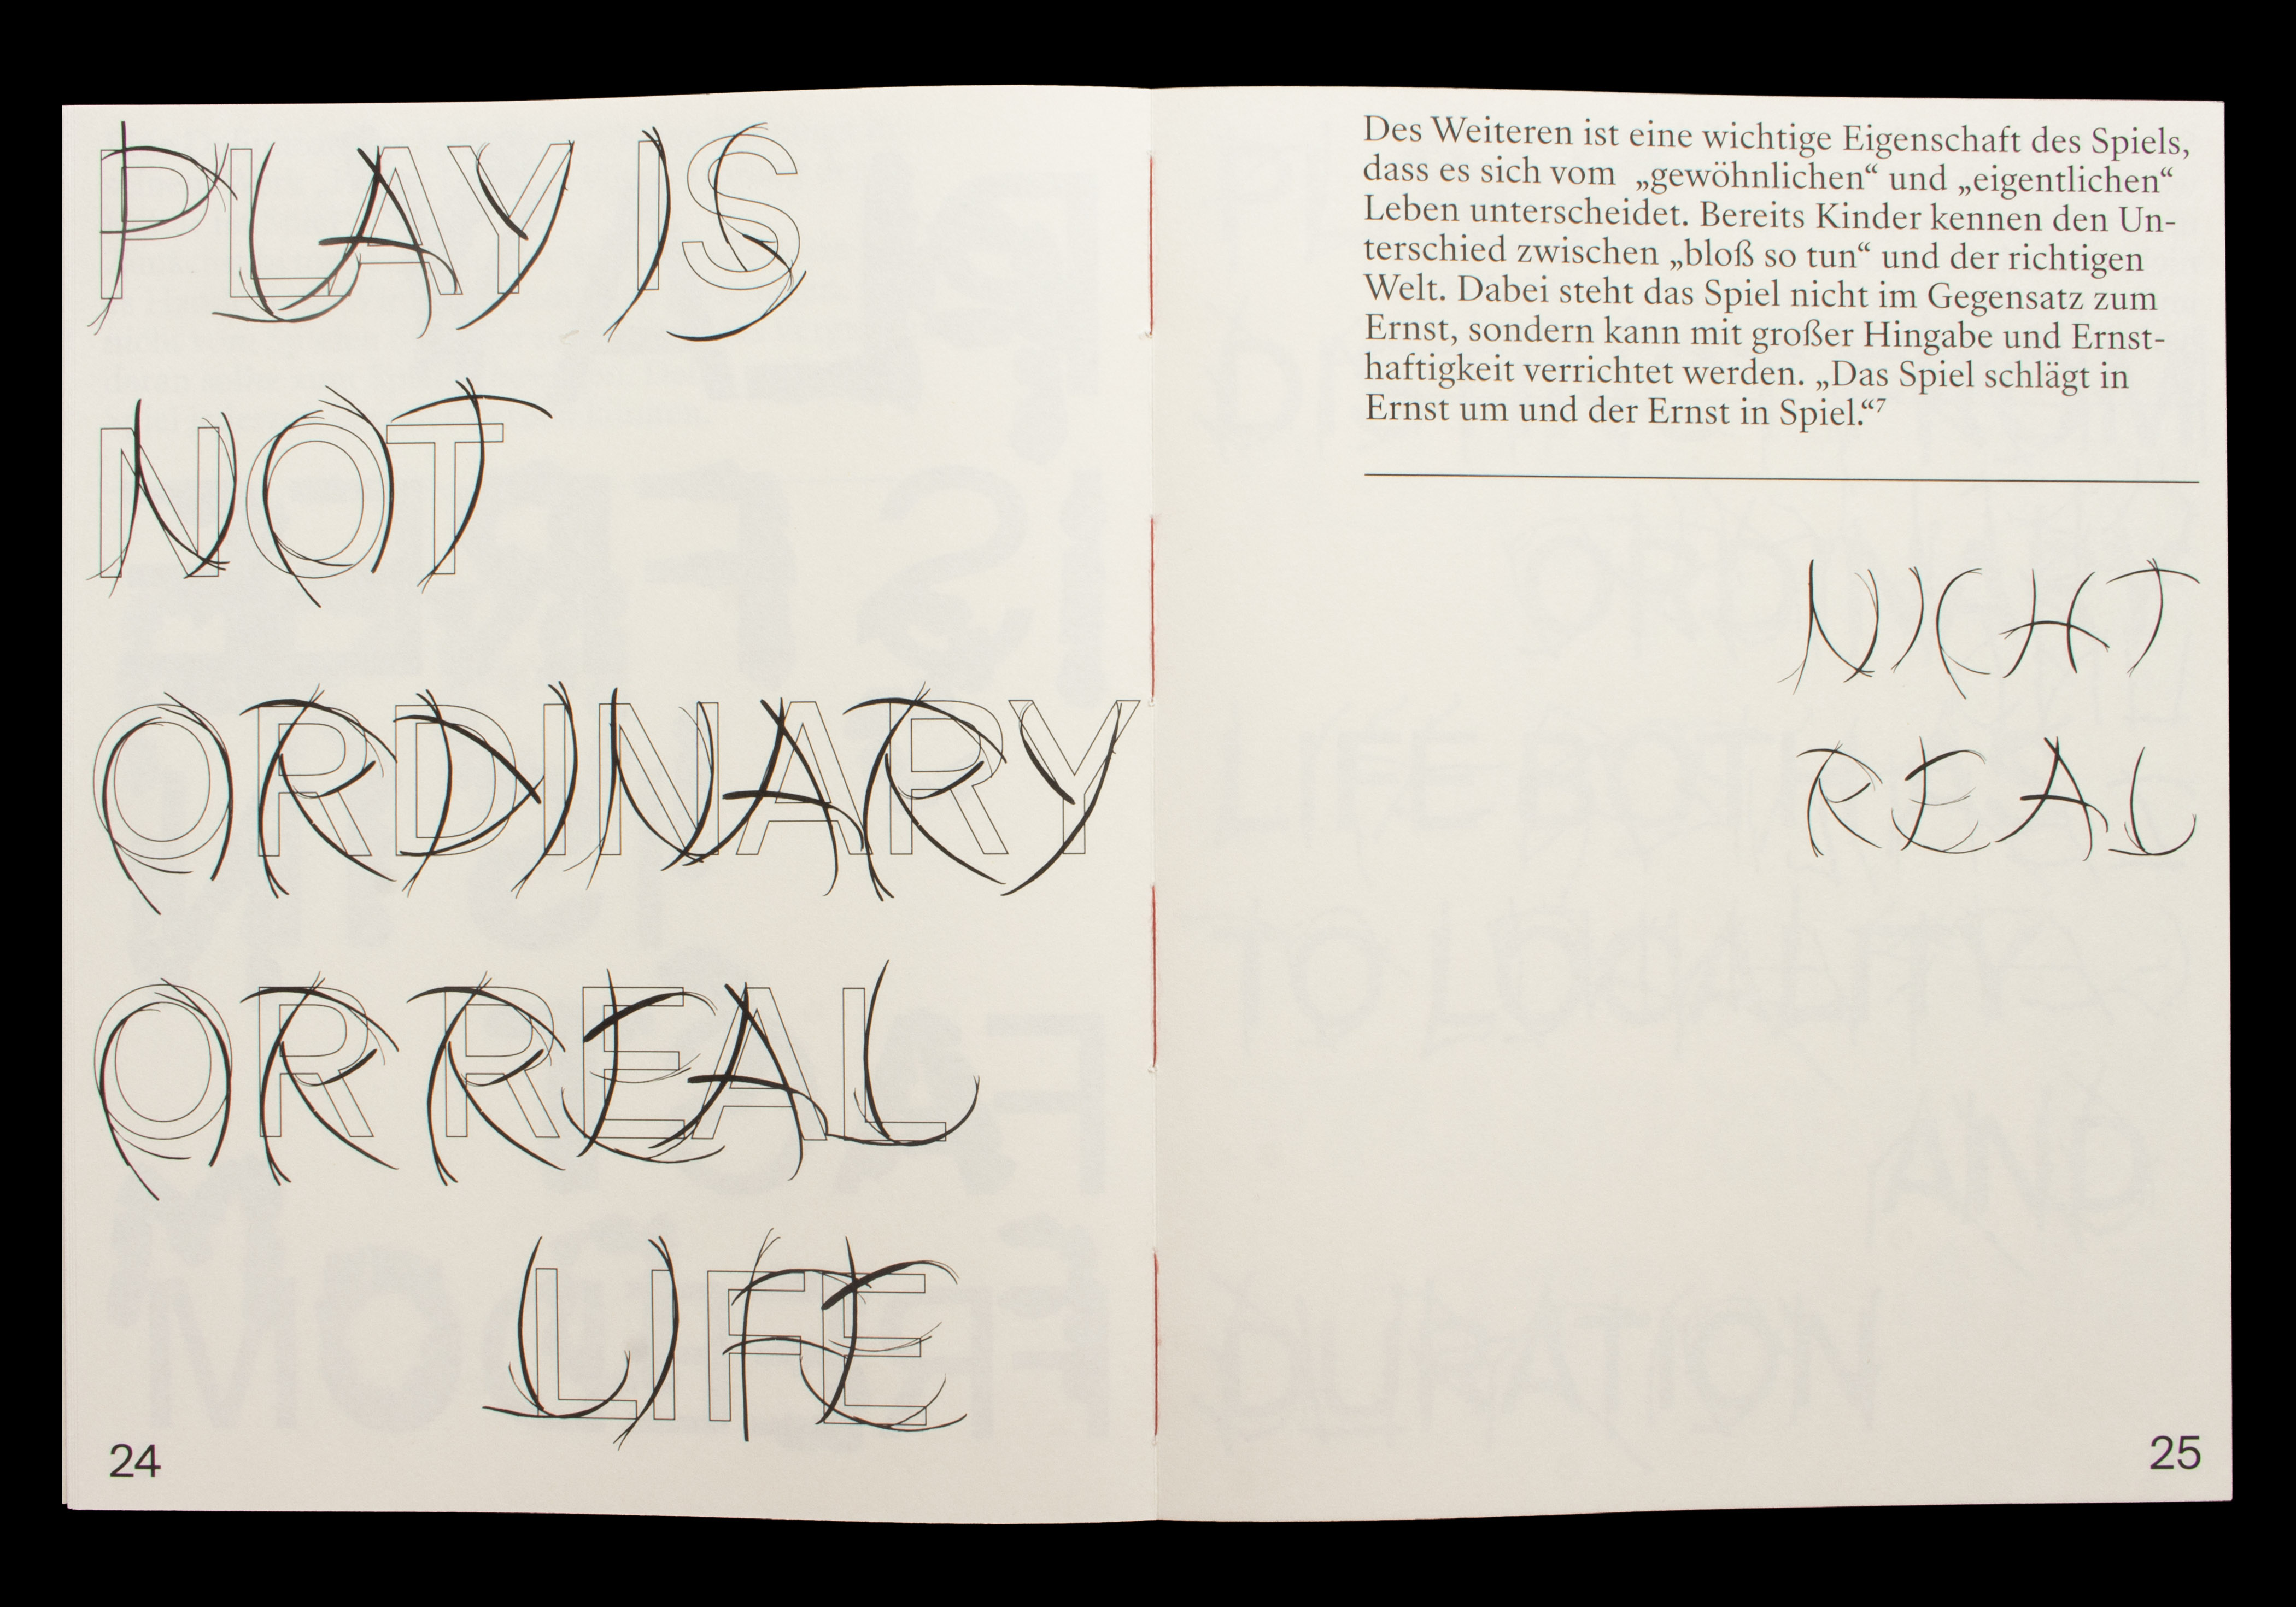 PLAY IS
NOT
ORDINARY
OR REAL
LIFE
24
Des Weiteren ist eine wichtige Eigenschaft des Spiels,
dass es sich vom „gewöhnlichen“ und „eigentlichen“
Leben unterscheidet. Bereits Kinder kennen den Un-
terschied zwischen „bloß so tun“ und der richtigen
Welt. Dabei steht das Spiel nicht im Gegensatz zum
Ernst, sondern kann mit großer Hingabe und Ernst-
haftigkeit verrichtet werden. „Das Spiel schlägt in
Ernst um und der Ernst in Spiel.“⁷
NICHT
REAL
25